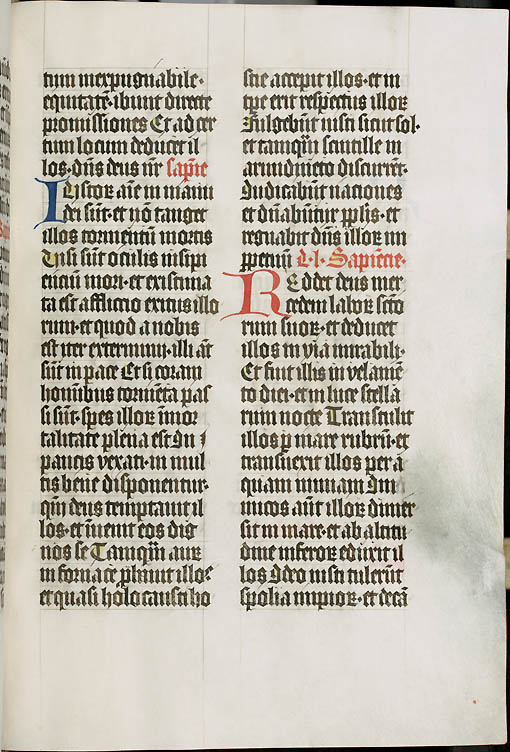 tum inexpugnabile·
equitatē·ibunt directe
promissiones Et ad cer
tum locum deducet il
los·dn̄s deus nr̄ sapīe
Iustor aīe in manu
dei sūt·et nō tanget
illos tormentū mortis
Uisi sūt oculis insipi
encium mori·et existima
ta est afflictio exitus illo
rum·et quod a nobis
est iter exterminii·illi āt
sūt in pace Et si coram
hominibus tormēta pas
si sūt·spes illoꝝ īmor
talitate plena est In
paucis vexati·in mul
tis bene disponentur·
qm̄ deus temptauit il
los·et īuenit eos dig
nos se Tamqm̄ auꝝ
in fornace ꝓbauit illos
et quasi holocausti ho
stie accepit illos·et in
tꝑe erit respectus illoꝝ
Fulgebūt iusti sicut sol·
et tamqm̄ scintille in
arundineto discurrēt·
Iudicabūt naciones
et dn̄abūtur ppl̄is·et
regnabit dn̄s illoꝝ in
ꝑpetuū L·l·Sapiēcie·
Reddet deus mer
cedem laboꝝ scto
rum suoꝝ·et deducet
illos in via mirabili·
Et fuit illis in velamē
to diei·et in luce stella
rum nocte Transtulit
illos ꝑ mare rubrū·et
transuexit illos per a
quam nimiam Ini
micos aūt illoꝝ dimer
sit in mare·et ab altitu
dine inferoꝝ eduxit il
los Ideo iusti tulerūt
spolia impioꝝ·et decā